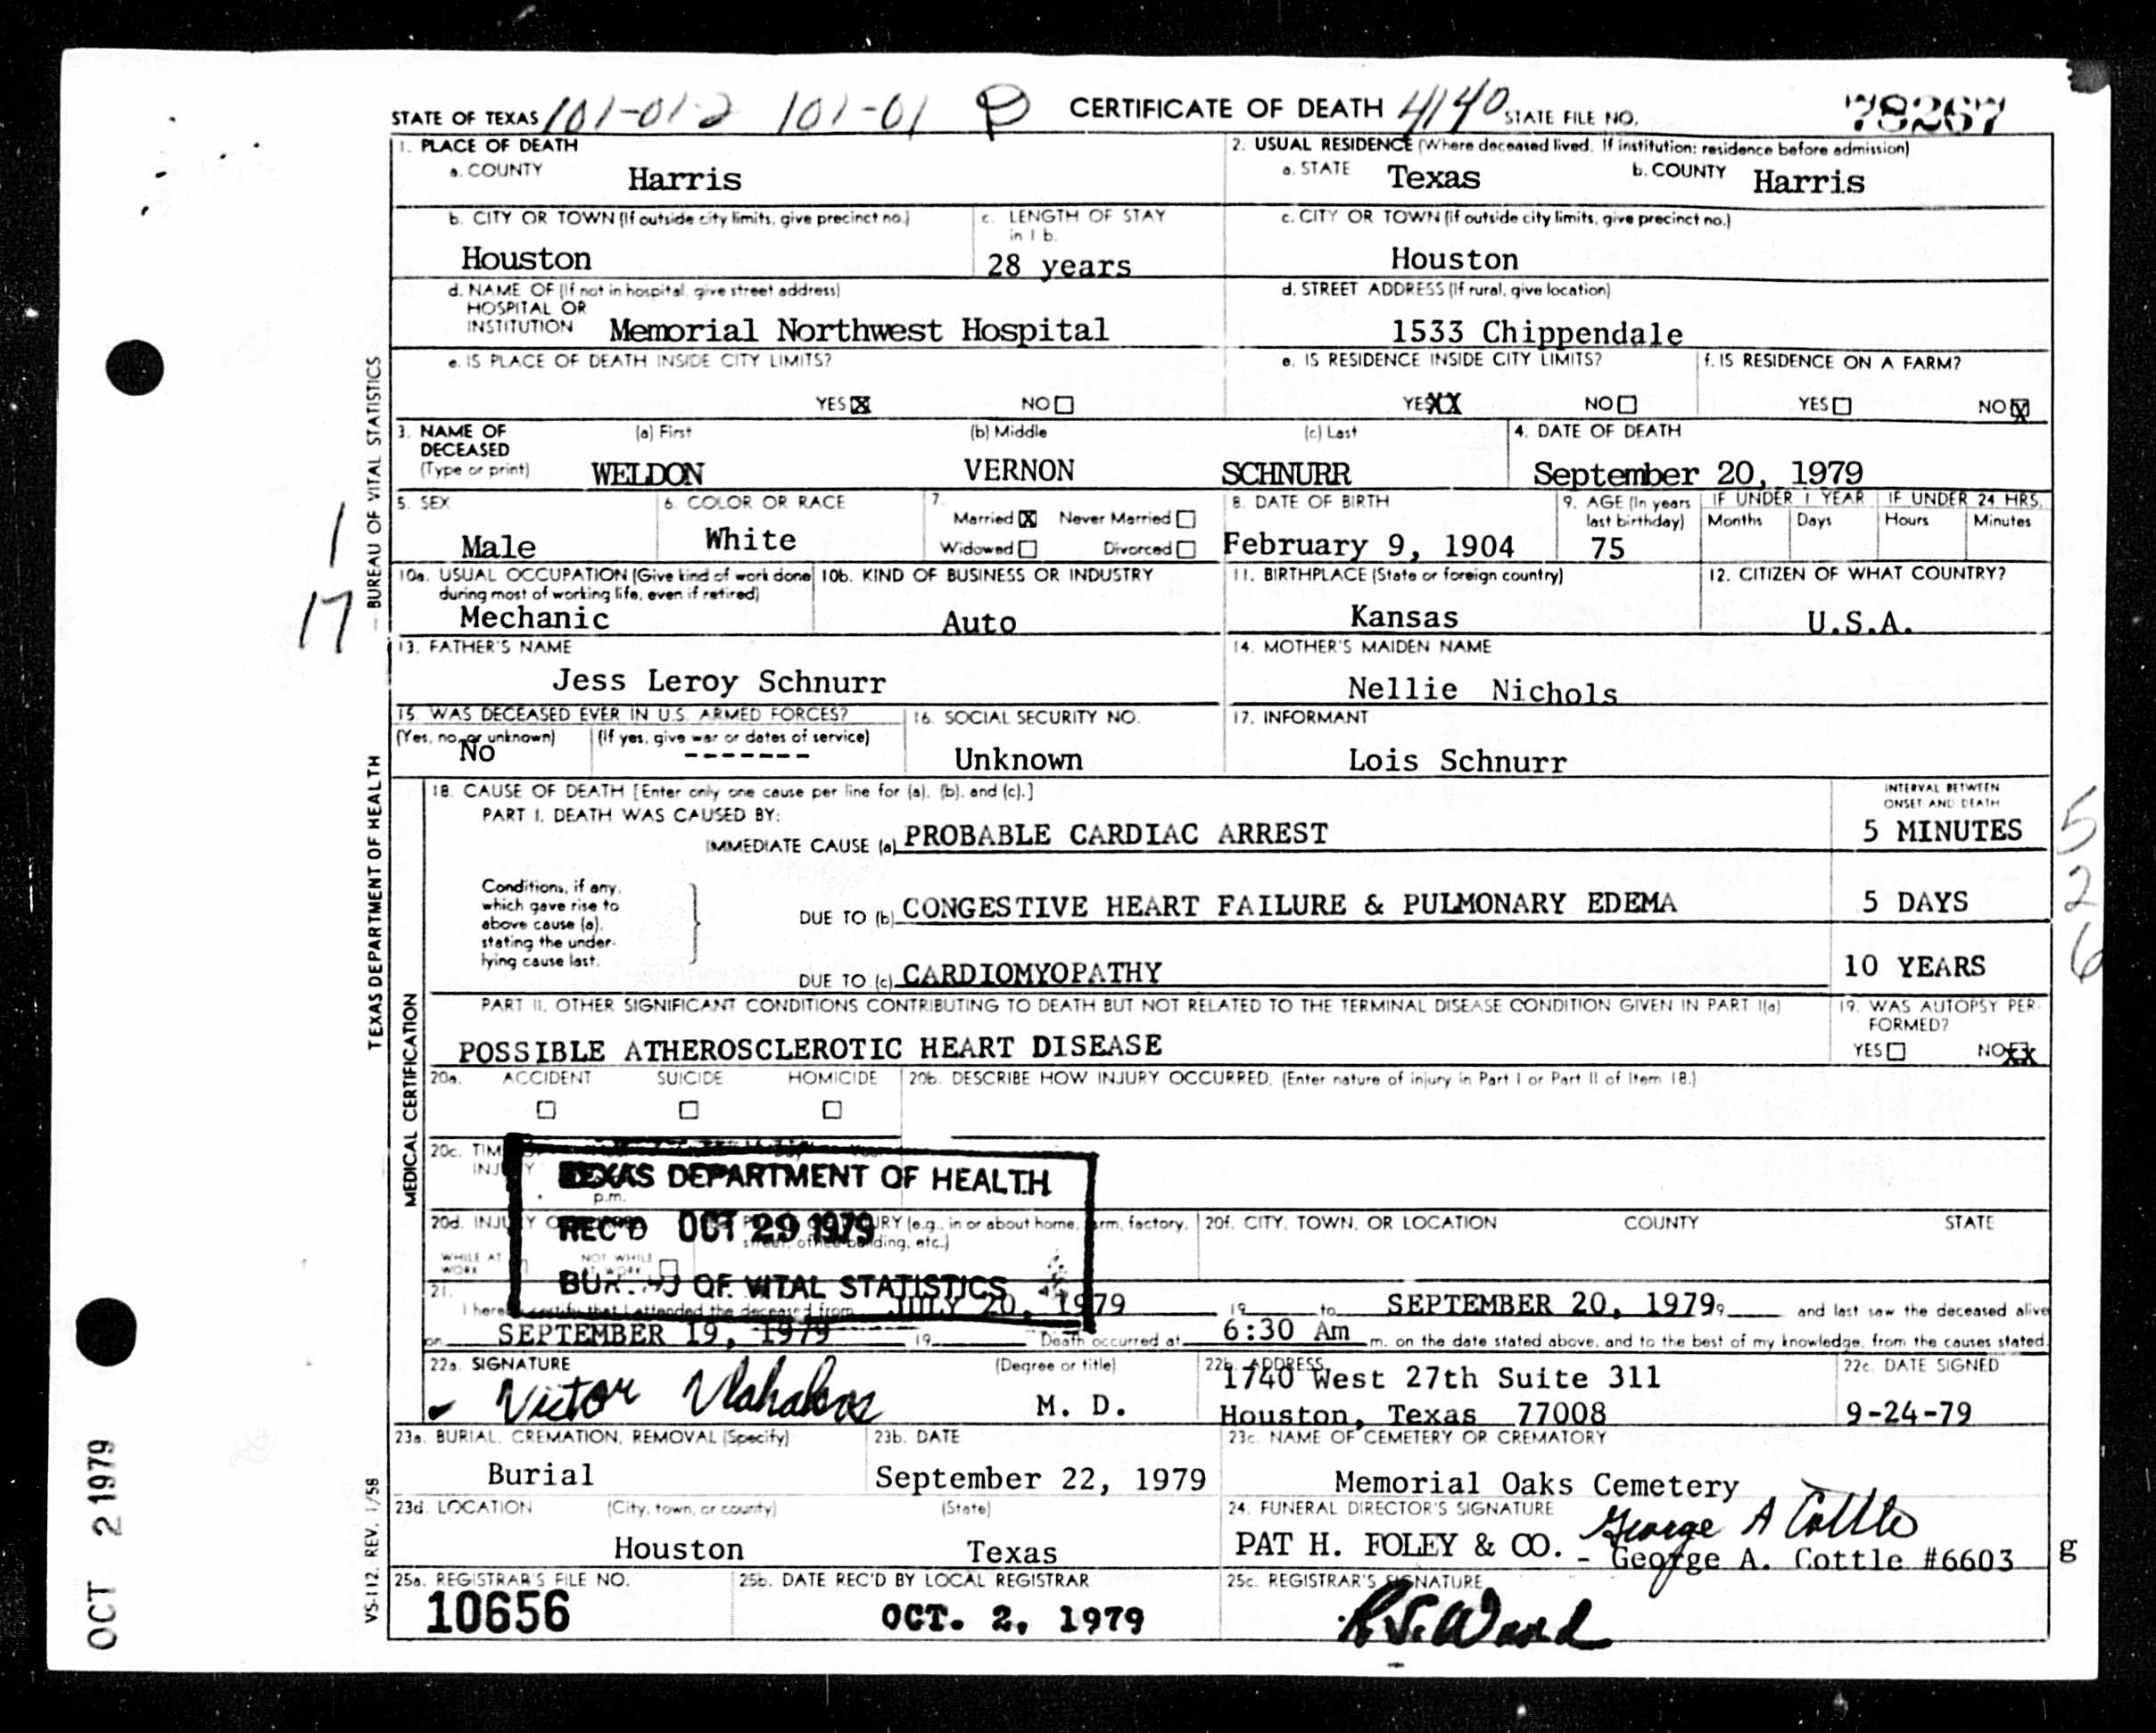 STATE OF TEXAS 101-012 101-01 P CERTIFICATE OF DEATH 4140 STATE FILE NO. 78267
1. PLACE OF DEATH
a. COUNTY Harris
2. USUAL RESIDENCE (Where deceased lived. If institution: residence before admission)
a. STATE Texas b. COUNTY Harris
b. CITY OR TOWN (If outside city limits, give precinct no.)
Houston
c. LENGTH OF STAY
in 1 b.
28 years
c. CITY OR TOWN (If outside city limits, give precinct no.)
Houston
d. NAME OF (If not in hospital, give street address)
HOSPITAL OR
INSTITUTION Memorial Northwest Hospital
d. STREET ADDRESS (If rural, give location)
1533 Chippendale
e. IS PLACE OF DEATH INSIDE CITY LIMITS?
YES X NO
e. IS RESIDENCE INSIDE CITY LIMITS?
YES XX NO
f. IS RESIDENCE ON A FARM?
YES NO X
3. NAME OF
DECEASED
(Type or print)
(a) First (b) Middle (c) Last
WELDON VERNON SCHNURR
4. DATE OF DEATH
September 20, 1979
5. SEX
Male
6. COLOR OR RACE
White
7.
Married X Never Married
Widowed Divorced
8. DATE OF BIRTH
February 9, 1904
9. AGE (In years
last birthday)
75
IF UNDER 1 YEAR
Months Days
IF UNDER 24 HRS.
Hours Minutes
10a. USUAL OCCUPATION (Give kind of work done
during most of working life, even if retired)
Mechanic
10b. KIND OF BUSINESS OR INDUSTRY
Auto
11. BIRTHPLACE (State or foreign country)
Kansas
12. CITIZEN OF WHAT COUNTRY?
U.S.A.
13. FATHER'S NAME
Jess Leroy Schnurr
14. MOTHER'S MAIDEN NAME
Nellie Nichols
15. WAS DECEASED EVER IN U.S. ARMED FORCES?
(Yes, no, or unknown) (If yes, give war or dates of service)
No -------
16. SOCIAL SECURITY NO.
Unknown
17. INFORMANT
Lois Schnurr
18. CAUSE OF DEATH [Enter only one cause per line for (a), (b), and (c).]
PART I. DEATH WAS CAUSED BY:
INTERVAL BETWEEN
ONSET AND DEATH
IMMEDIATE CAUSE (a) PROBABLE CARDIAC ARREST 5 MINUTES
Conditions, if any,
which gave rise to
above cause (a),
stating the under-
lying cause last.
DUE TO (b) CONGESTIVE HEART FAILURE & PULMONARY EDEMA 5 DAYS
DUE TO (c) CARDIOMYOPATHY 10 YEARS
PART II. OTHER SIGNIFICANT CONDITIONS CONTRIBUTING TO DEATH BUT NOT RELATED TO THE TERMINAL DISEASE CONDITION GIVEN IN PART I(a)
POSSIBLE ATHEROSCLEROTIC HEART DISEASE
19. WAS AUTOPSY PER-
FORMED?
YES NO XX
20a. ACCIDENT SUICIDE HOMICIDE
20b. DESCRIBE HOW INJURY OCCURRED. (Enter nature of injury in Part I or Part II of Item 18.)
20c.
p.m.
TEXAS DEPARTMENT OF HEALTH
REC'D OCT 29 1979
BUREAU OF VITAL STATISTICS
20d. INJURY
WHILE AT
WORK
NOT WHILE
AT WORK
(e.g., in or about home, farm, factory,
street, office building, etc.)
20f. CITY, TOWN, OR LOCATION COUNTY STATE
21.
I hereby certify that I attended the deceased from JULY 20, 1979 19 to SEPTEMBER 20, 1979 and last saw the deceased alive
on SEPTEMBER 19, 1979 19 Death occurred at 6:30 Am m. on the date stated above, and to the best of my knowledge, from the causes stated.
22a. SIGNATURE (Degree or title)
Victor Vlahakos M. D.
22b. ADDRESS
1740 West 27th Suite 311
Houston, Texas 77008
22c. DATE SIGNED
9-24-79
23a. BURIAL, CREMATION, REMOVAL (Specify)
Burial
23b. DATE
September 22, 1979
23c. NAME OF CEMETERY OR CREMATORY
Memorial Oaks Cemetery
23d. LOCATION (City, town, or county) (State)
Houston Texas
24. FUNERAL DIRECTOR'S SIGNATURE
George A Cottle
PAT H. FOLEY & CO. - George A. Cottle #6603
g
25a. REGISTRAR'S FILE NO.
10656
25b. DATE REC'D BY LOCAL REGISTRAR
OCT. 2, 1979
25c. REGISTRAR'S SIGNATURE
R.S. Ward
VS-112, REV. 1/58
TEXAS DEPARTMENT OF HEALTH — BUREAU OF VITAL STATISTICS
MEDICAL CERTIFICATION
1
17
5
2
6
OCT 2 1979